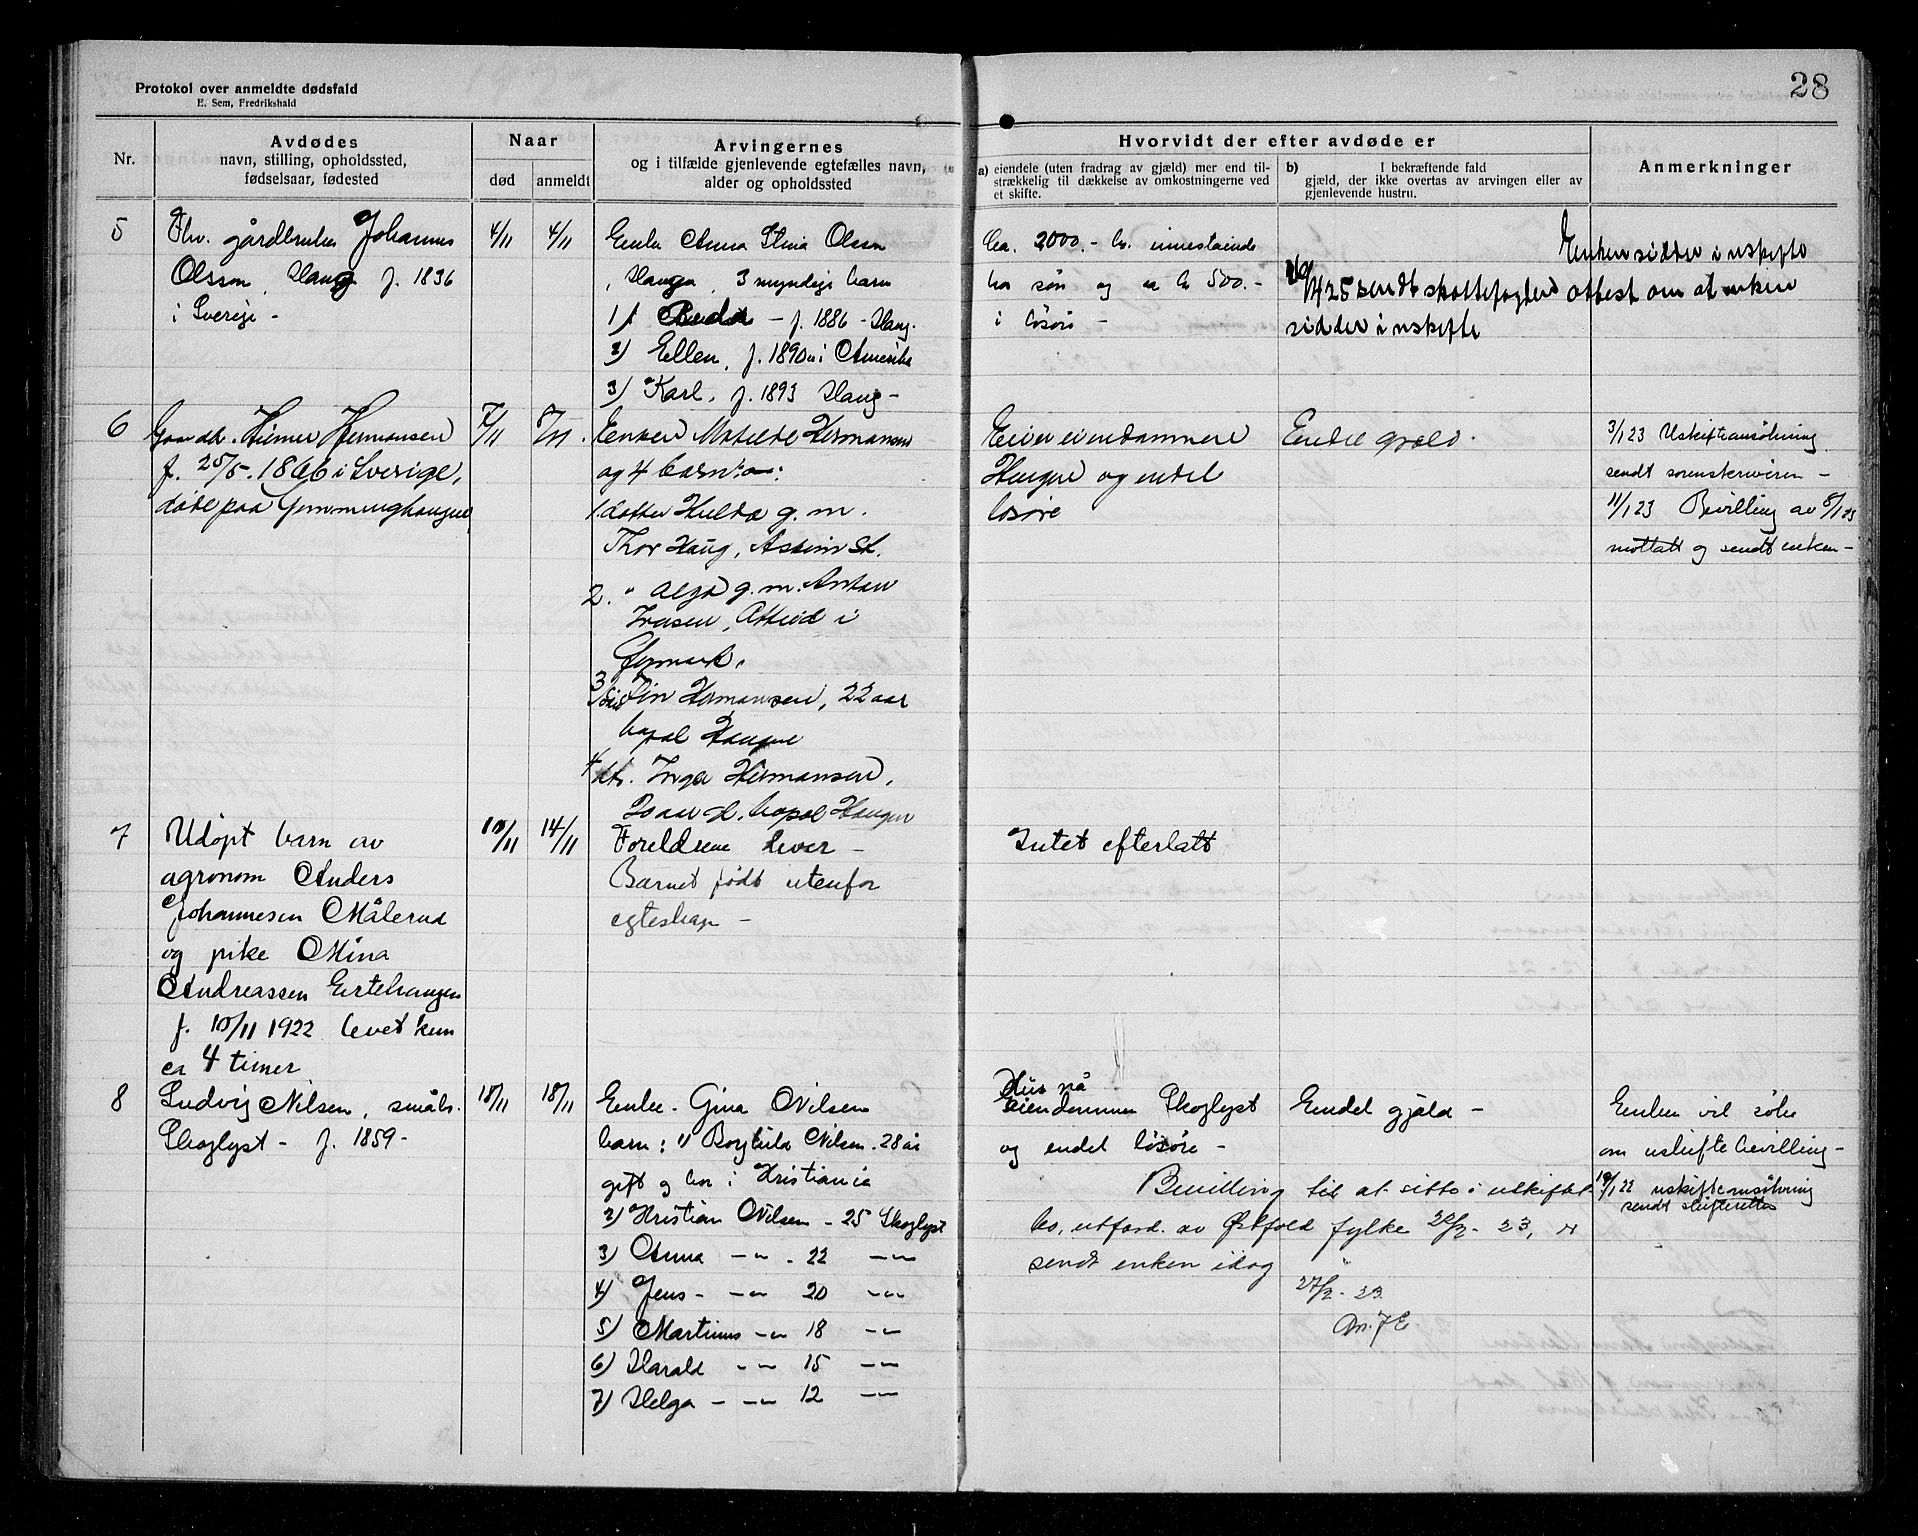 28
Protokol over anmeldte dødsfald
E. Sem, Fredrikshald
Nr.
Avdødes
navn, stilling, opholdssted,
fødselsaar, fødested
Naar
død
anmeldt
Arvingernes
og i tilfælde gjenlevende egtefælles navn,
alder og opholdssted
Hvorvidt der efter avdøde er
a) eiendele (uten fradrag av gjæld) mer end til-
strækkelig til dækkelse av omkostningerne ved
et skifte.
b) I bekræftende fald
gjæld, der ikke overtas av arvingen eller av
gjenlevende hustru.
Anmerkninger
5
Fhv. gårdbruker Johannes
Olsson, Haug f. 1836
i Sverige -
4/11
4/11
Enke Anna Stina Olsson
, Haugen, 3 myndige barn
1) Beda - f. 1886 - Haug.
2) Ellen, f. 1890 i Amerika
3) Karl, f. 1893 Haug -
Ca. 2000.- kr. innestående
hos søn og ca kr 500.-
i løsøre -
Enken sidder i uskifte
/4 25 sendt skattefogden attest om at enken
sidder i uskifte
6
Gaardbr. Hilmer Hermansen
f. 25/5. 1866 i Sverige,
døde paa Gjemminghaugen
7/11
8/11
Enken Matilde Hermansen
og 4 barn:
1 datter Hulda g. m.
Thor Haug, Askim St.
2. " Alga g. m. Anton
Iversen, Atterød i
3 Søn Finn Hermansen, 22 aar
bopal Haugen
4 dtr. Inga Hermansen,
bopal Haugen
Eier eiendommen
Haugen og endel
løsøre
Endel gjæld.
3/1 23 Uskifteansökning
sendt sorenskriveren -
11/1 23 Bevilling av 8/1 23
mottatt og sendt enken -
7
Udöpt barn av
agronom Anders
Johannesen Målerud
og pike Mina
Andreassen Ertehaugen
f. 10/11 1922 levet kun
ca 4 timer
10/11
14/11
Foreldrene lever -
Barnet født utenfor
egteskap -
Intet efterlatt
8
Ludvig Nilsen, småb.
Skoglyst - f. 1859 -
18/11
18/11
Enke. Gina Nilsen
barn: 1) Borghild Nilsen - 28 år
gift og bor i Kristiania
2) Kristian Nilsen - 25 Skoglyst
3) Anna -"- - 22 -"-
4) Jens - -"- 20 -"-
5) Martinus -"- 18 -"-
6) Harald -"- 15 -"-
7) Helga - -"- 12 -"-
Hus på
eiendommen Skoglyst
og endel løsøre -
Endel gjæld -
Bevilling til at sitte i uskiftet
bo, utferd. av Østfold fylke 22/2 - 23, er
sendt enken idag
27/2 - 23.
Enken vil søke
om uskiftebevilling -
19/1 22 uskifteansökning
sendt skifteretten